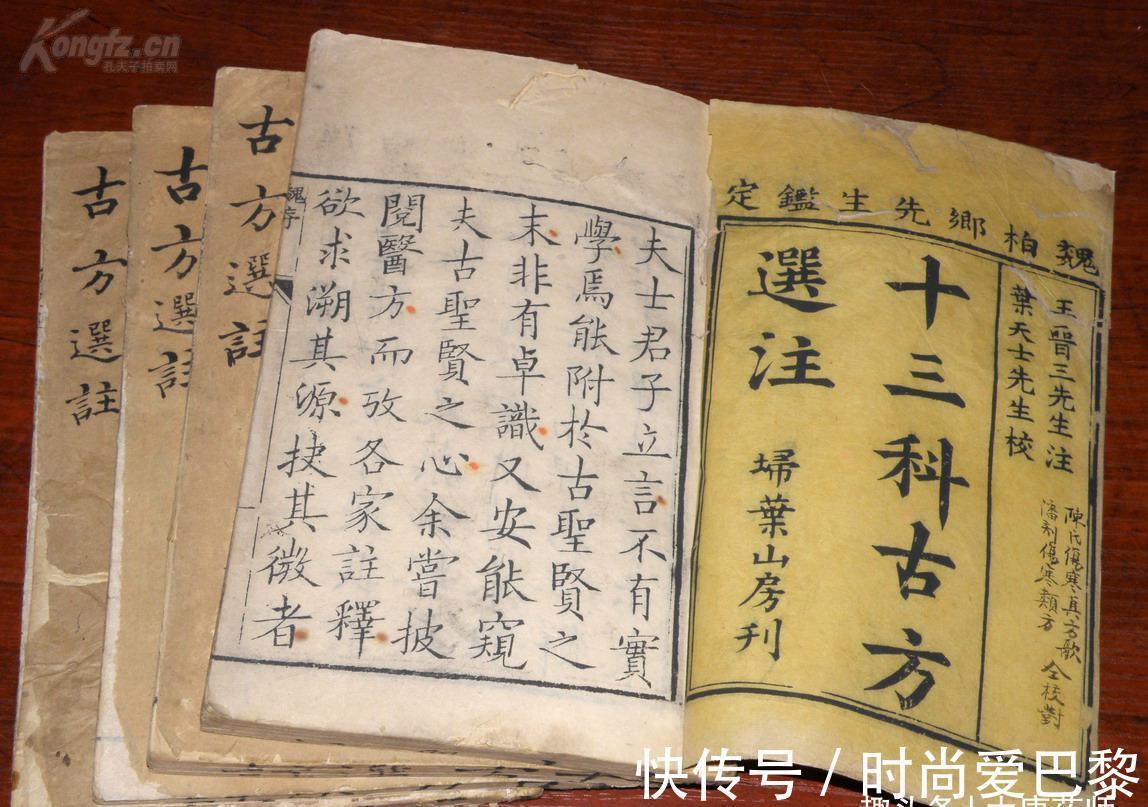 Kongfz.cn
孔夫子拍卖网
魏柏鄉先生鑑定
王晉三先生注
葉天士先生校
陳氏傷寒真方歌
傷寒類方
仝校對
十三科古方
選注
埽葉山房刊
夫士君子立言不有實
學焉能附於古聖賢之
末非有卓識又安能窺
夫古聖賢之心余嘗披
閱醫方而攷各家註釋
欲求溯其源抉其微者
魏序
古方選註
古方選註
古方選註
快传号 / 时尚爱巴黎